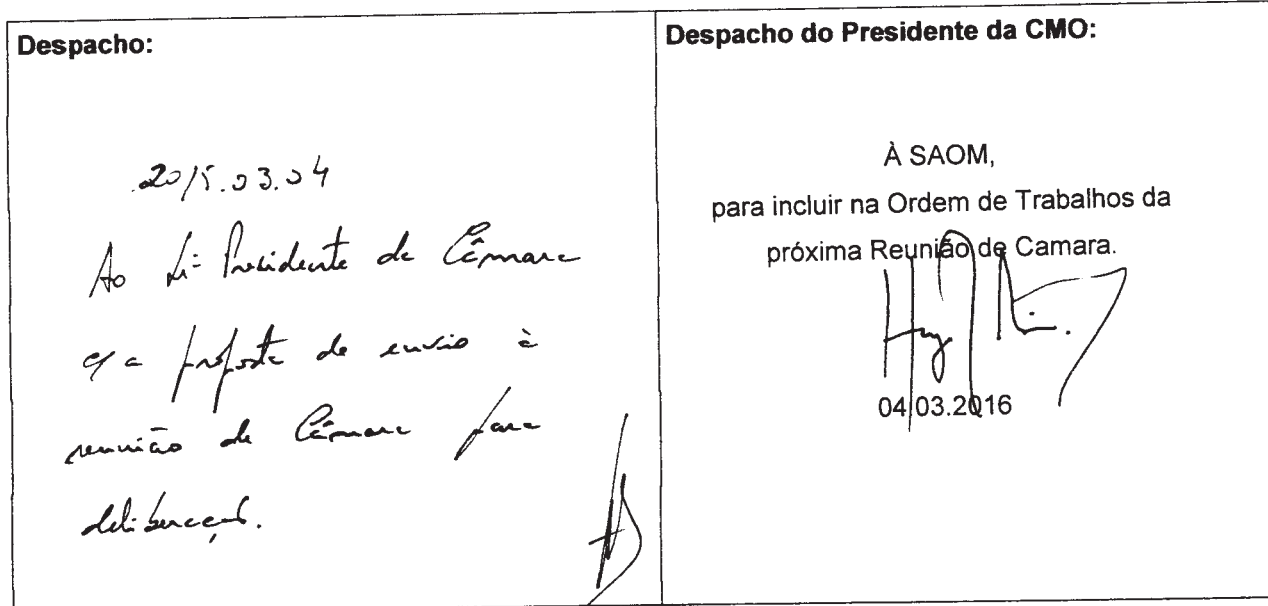 Despacho:
2015.03.04
Ao Sr. Presidente da Câmara
c/ a proposta de envio à
reunião de Câmara para
deliberação.
Despacho do Presidente da CMO:
À SAOM,
para incluir na Ordem de Trabalhos da
próxima Reunião de Camara.
04.03.2016